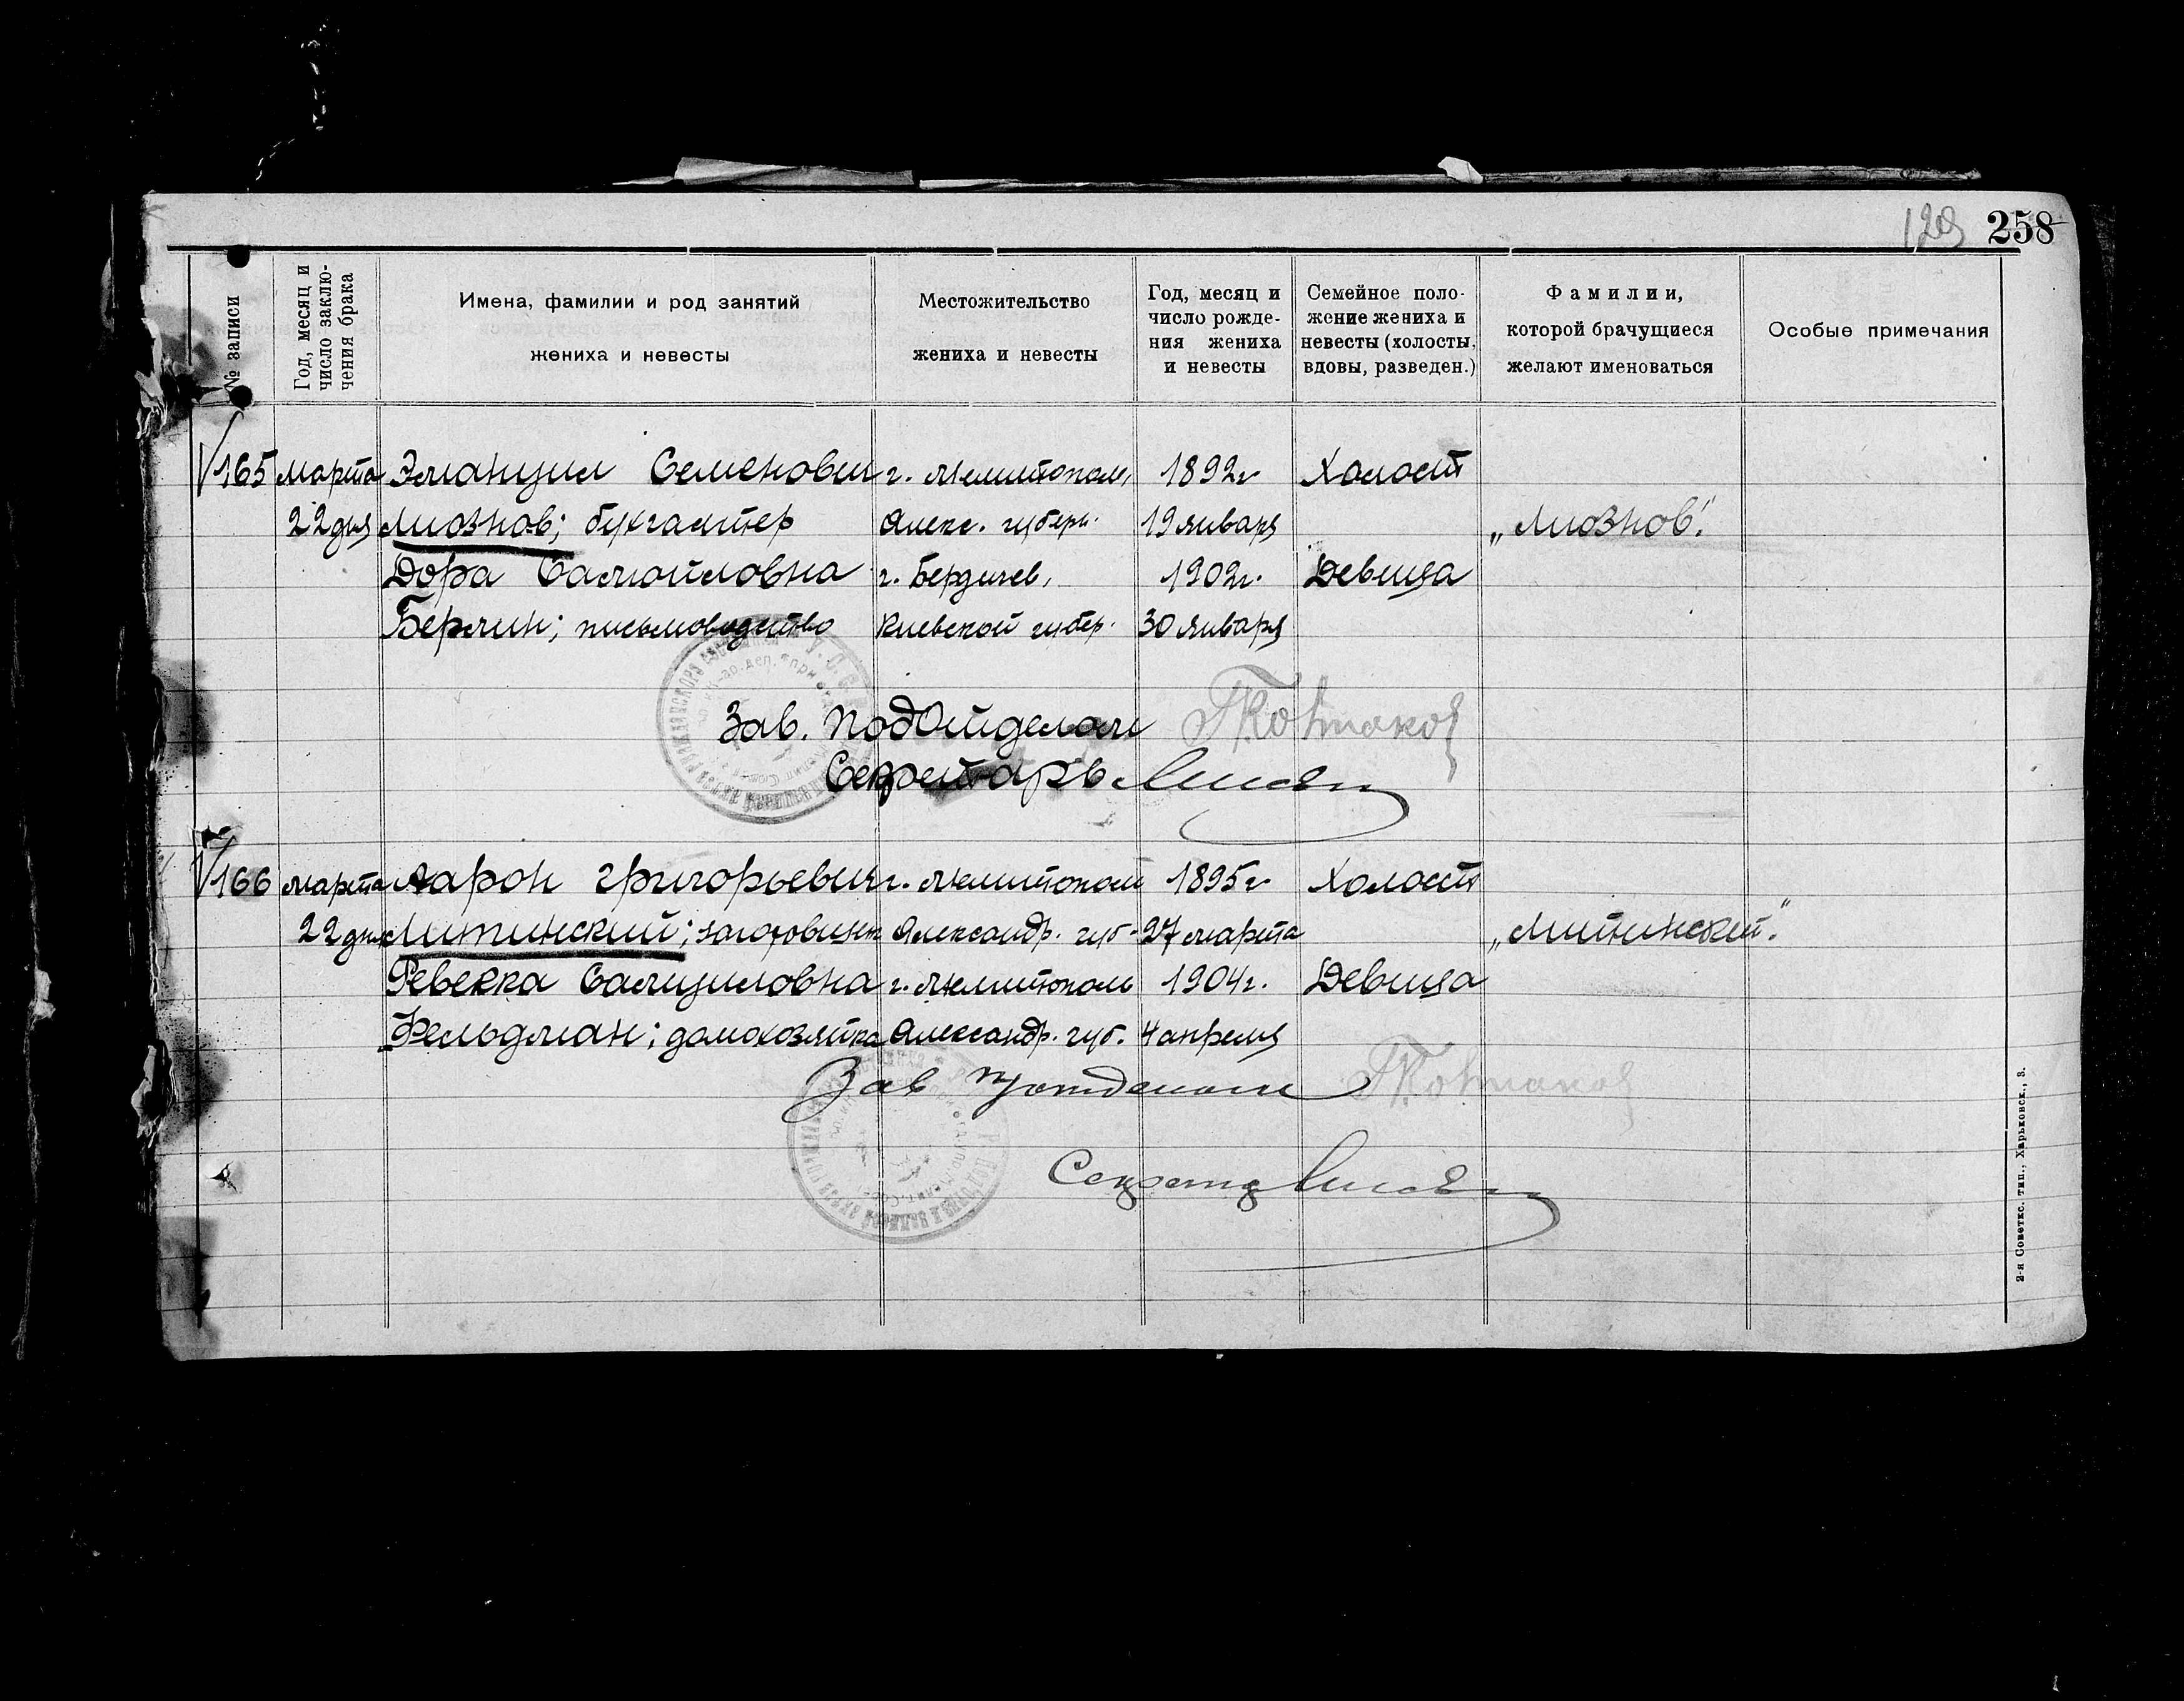 129 258
№ записи
Год, месяц и
число заклю-
чения брака
Имена, фамилии и род занятий
жениха и невесты
Местожительство
жениха и невесты
Год, месяц и
число рожде-
ния жениха
и невесты
Семейное поло-
жение жениха и
невесты (холосты,
вдовы, разведен.)
Фамилии,
которой брачущиеся
желают именоваться
Особые примечания
165 марта Эмануил Семенович г. Мелитополь, 1892г Холост
22 дня Лиознов; бухгалтер Алекс. губерн. 19 января „Лиознов".
Дора Самойловна г. Бердичев, 1902г. Девица
Берлин; письмоводство Киевской губер. 30 января
Зав. Подотделом
Секретарь
166 марта Аарон Григорьевич г. Мелитополь 1895г Холост
22 дня Литинский; заготовщик Александр. губ. 27 марта „Литинский".
Ревекка Самуиловна г. Мелитополь 1904г. Девица
Фельдман; домохозяйка Александр. губ. 4 апреля
Зав подотделом
Секретар
2-я Советск. тип., Харьковск., 3.